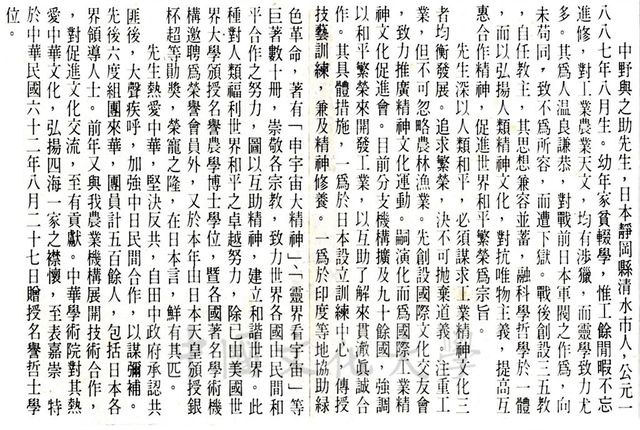 中野與之助先生，日本靜岡縣清水市人，公元一
八八七年八月生。幼年家貧輟學，惟工餘閒暇不忘
進修，對工業農業天文，均有涉獵，而靈學致力尤
多。其為人温良謙恭，對戰前日本軍閥之作為，向
未苟同，致不為所容，而遭下獄。戰後創設三五教
，自任教主，其思想兼容並蓄，融科學哲學於一體
，而以弘揚人類精神文化，對抗唯物主義，提高互
惠合作精神，促進世界和平繁榮為宗旨。
先生深以人類和平，必須謀求工業精神文化三
者均衡發展。追求繁榮，決不可拋棄道義，注重工
業，但不可忽略農林漁業。先創設國際文化交友會
，致力推廣精神文化運動。嗣演化而為國際工業精
神文化促進會。目前分支機構擴及九十餘國，強調
以和平繁榮來開發工業，以互助了解來貫澈眞誠合
作。其具體措施，一為於日本設立訓練中心，傳授
技藝訓練，兼及精神修養。一為於印度等地協助綠
色革命，著有「申宇宙大精神」、「靈界看宇宙」等
巨著數十冊，崇敬各宗教，致力世界各國由民間和
平合作之努力，圖以互助精神，建立和諧世界。此
種對人類福利世界和平之卓越努力，除已由美國世
界大學頒授名譽農學博士學位，暨各國著名學術機
構邀聘為榮譽會員外，又於本年由日本天皇頒授銀
杯超等勛獎，榮寵之隆，在日本言，鮮有其匹。
先生熱愛中華，堅決反共，自田中政府承認共
匪後，大聲疾呼，加強中日民間合作，以謀彌補。
先後六度組團來華，團員計五百餘人，包括日本各
界領導人士。前年又與我農業機構展開技術合作，
，對促進文化交流，至有貢獻。中華學術院對其熱
愛中華文化，弘揚四海一家之襟懷，至表嘉崇，特
於中華民國六十二年八月二十七日贈授名譽哲士學
位。
中國文化大學